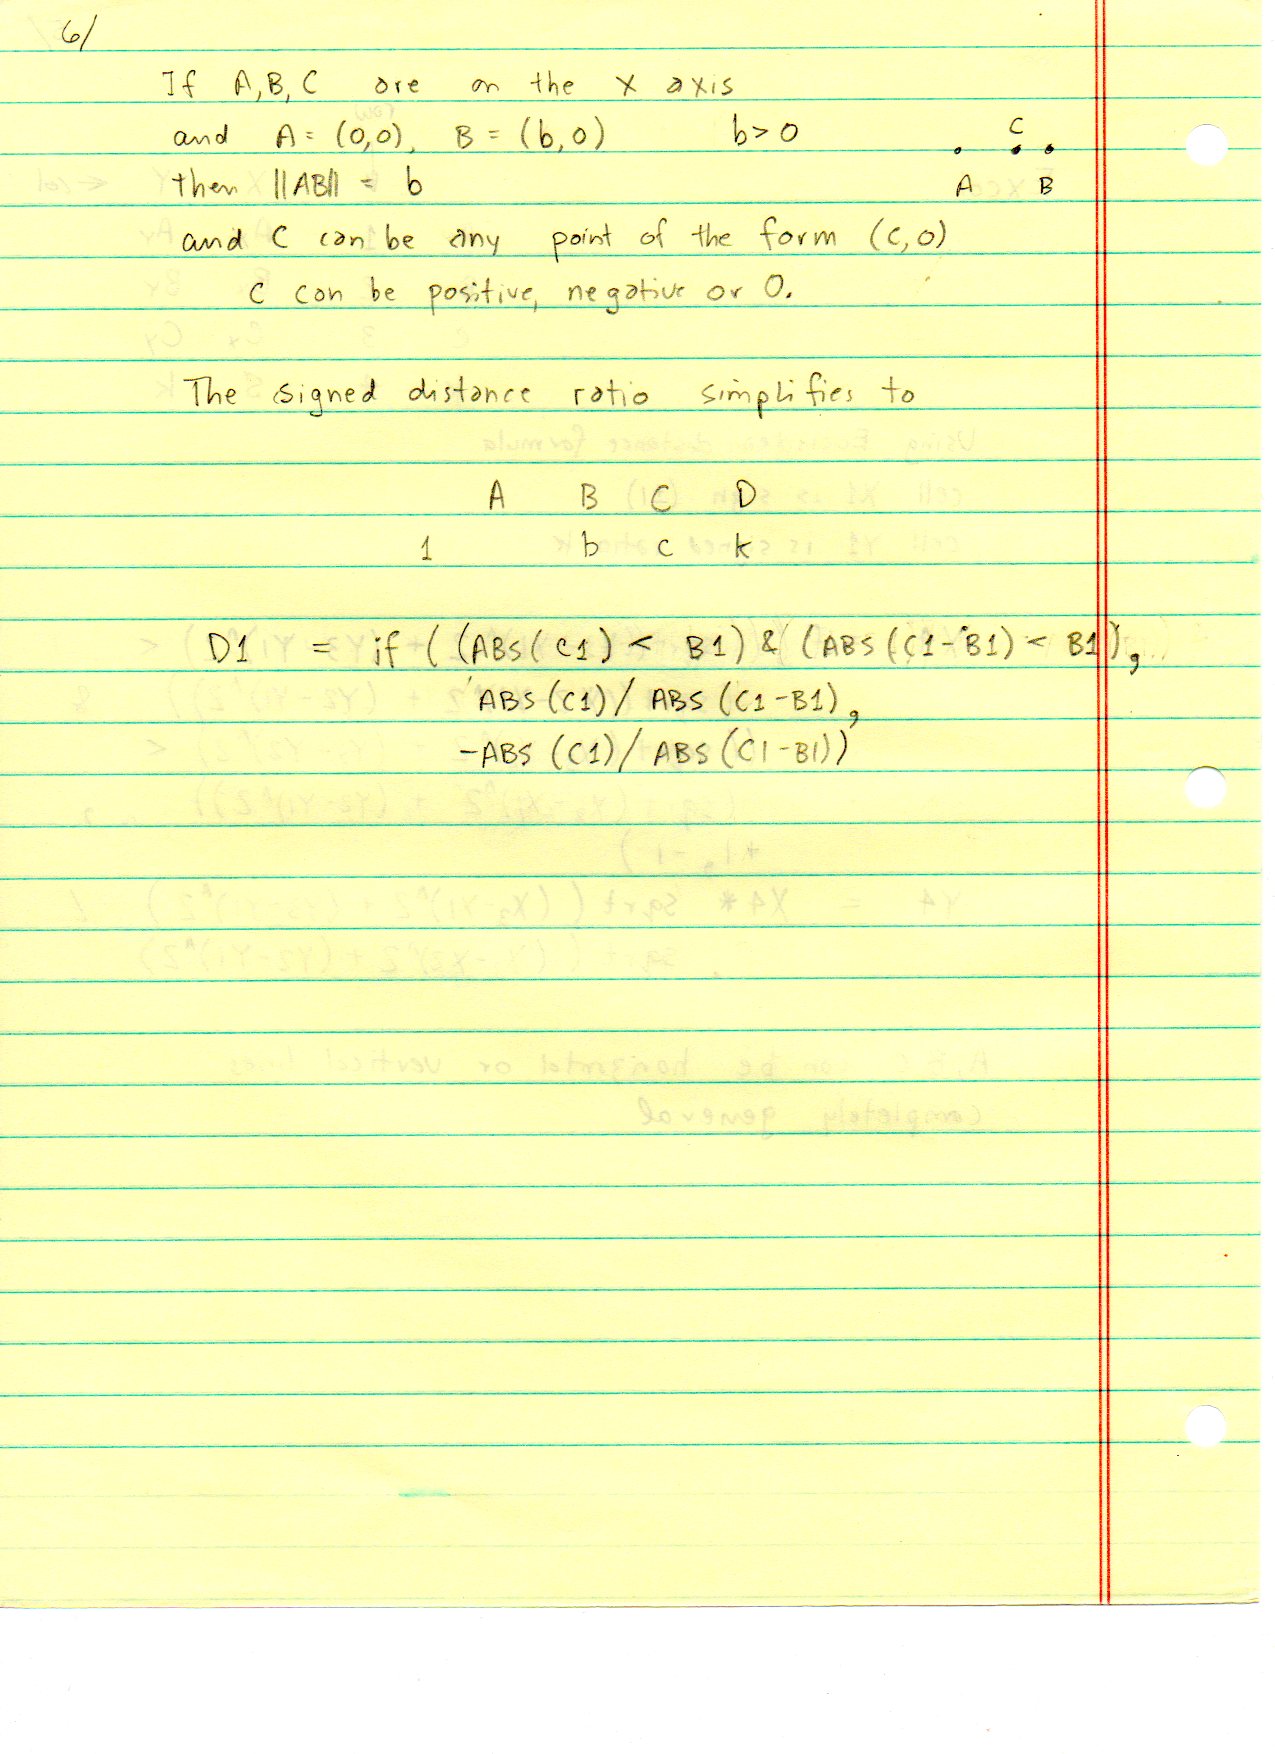 6/
If A, B, C are on the X axis
and A = (0,0), B = (b,0) b > 0
C
then ||AB|| = b
A B
and C can be any point of the form (c,0)
c can be positive, negative or 0.
The signed distance ratio simplifies to
A B C D
1 b c k
D1 = if ( (ABS(C1) < B1) & (ABS(C1-B1) < B1),
ABS(C1)/ ABS(C1-B1),
-ABS(C1)/ ABS(C1-B1))